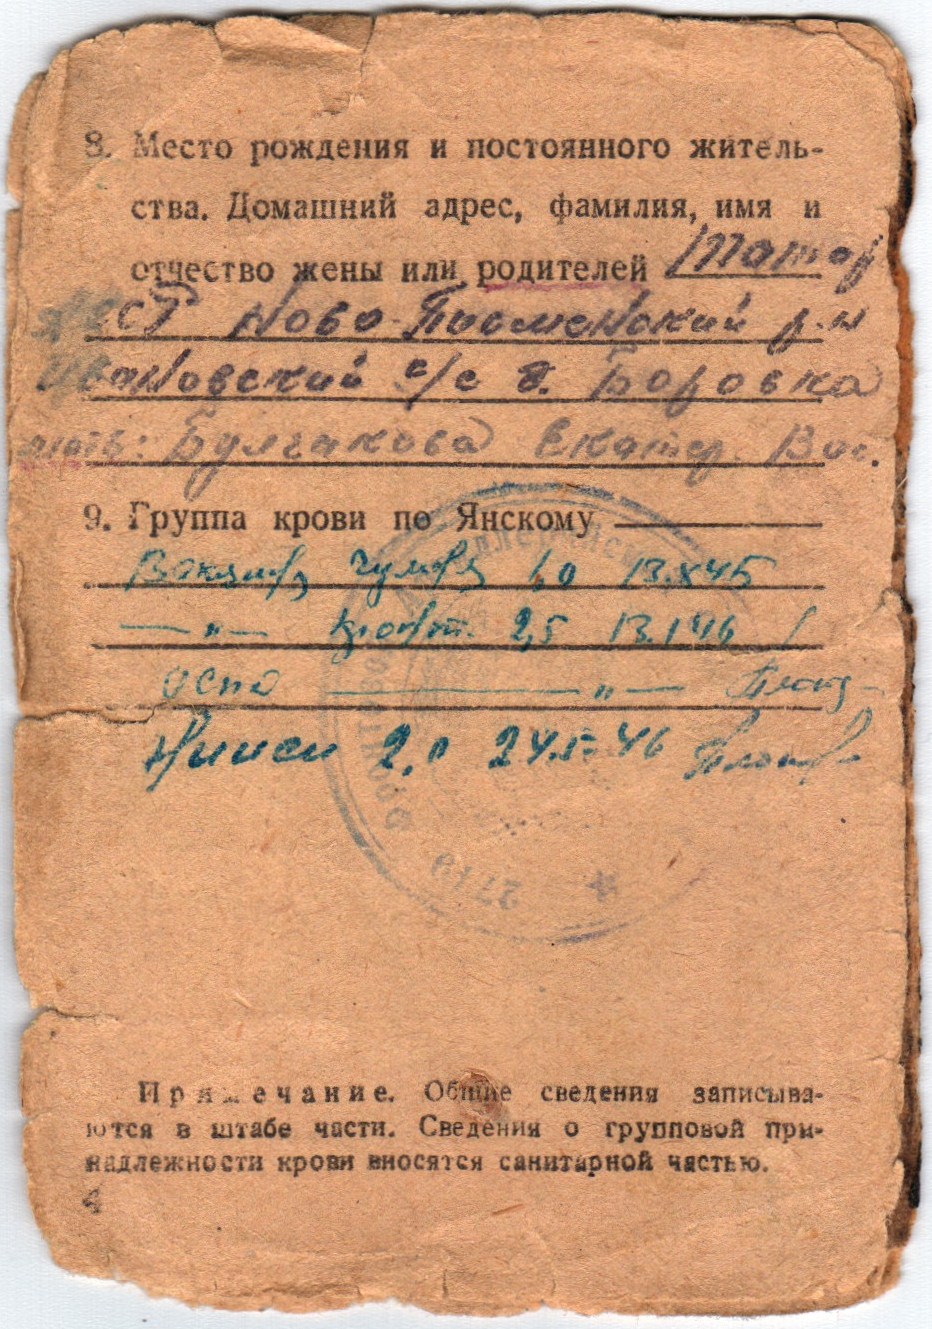 8. Место рождения и постоянного житель-
ства. Домашний адрес, фамилия, имя и
отчество жены или родителей Татар
АССР Ново-Письменский р-н
Ивановский с/с д. Боровка
мать: Булгакова Екатер. Вас.
9. Группа крови по Янскому
1,0 13.X.45
—"— 2,5 13.1.46
оспа —"—
2,0 24.5.46
2719
Примечание. Общие сведения записыва-
ются в штабе части. Сведения о групповой при-
надлежности крови вносятся санитарной частью.
4